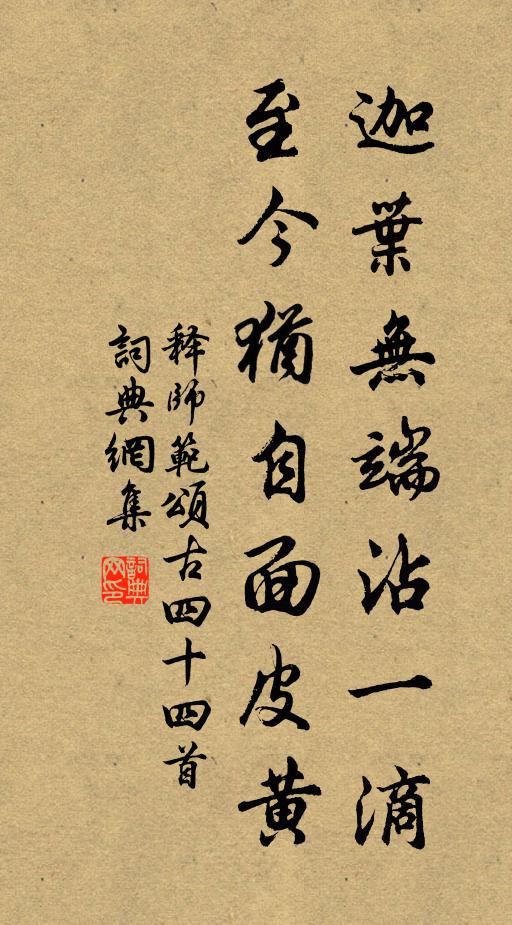 迦葉無端沾一滴
至今猶自面皮黄
释師範頌古四十四首
詞典網集
詞典網印